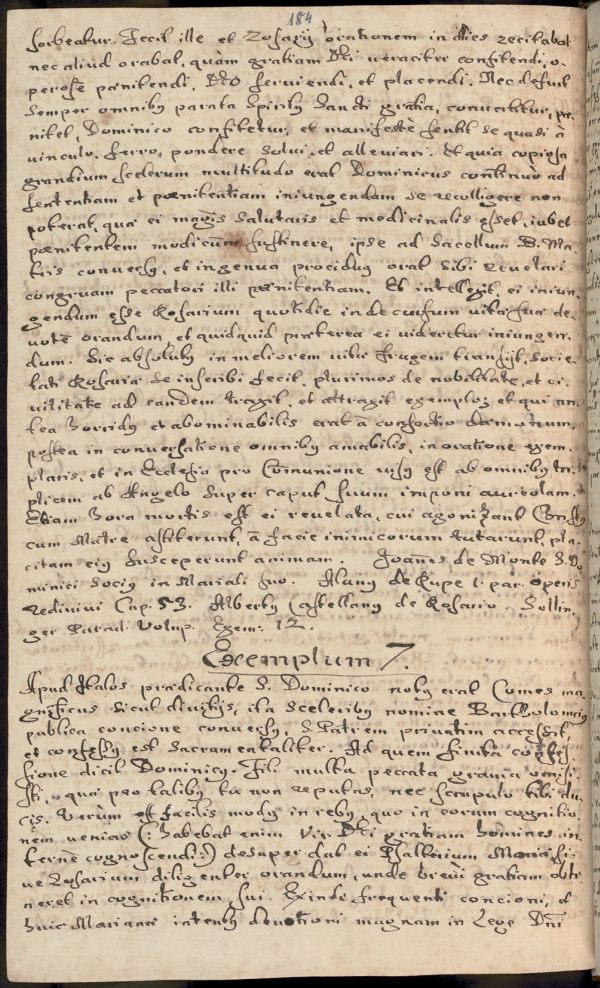 184
sorbeatur. Fecit ille et Rosarÿ orationem in dies recitabat
nec aliud orabat, quàm gratiam Dei veraciter confitendi, o-
perosè pœnitendi, Deo serviendi, et placendi. Nec defuit
semper omnibus parata Spiritus Sancti gratia, convertitur, pæ-
nitet, Dominico confitetur, et manifestè sentit se quasi à
vinculo, ferro, pondere solvi, et alleviari. Et quia copiosa
grandium scelerum multitudo erat Dominicus continuò ad
sententiam et pœnitentiam iniungendam se recolligere non
poterat, quæ ei magis salutaris et medicinalis esset, iubet
pœnitentem modicum sustinere, ipse ad sacellum B. Ma-
tris conversus, et in genua procidus orat sibi revelari
congruam peccatori illi pœnitentiam. Et intellexit, ei iniun-
gendum esse Rosarium quotidie in decursum vitæ suæ de-
votè orandum, et quidquid præterea ei videretur iniungen-
dum. Sic absolutus in meliorem vitæ frugem transijt, socie-
tati Rosariæ se inscribi fecit, plurimos de nobilitate, et ci-
vilitate ad eandem traxit, et attraxit exemplo; et qui an-
tea horridus et abominabilis erat à consortio dæmonum,
postea in conversatione omnibus amabilis, in oratione exem-
plaris, et in Ecclesia pro Comunione visus est ab omnibus tri-
plicem ab Angelo super caput suum imponi aureolam.
Etiam hora mortis est ei revelata, cui agonizanti Christus
cum Matre astiterunt, à facie inimicorum tutarunt, pla-
citam eius susceperunt animam. Joannes de Monte S. Do-
minici socius in Mariali suo. Alanus de Rupe 1. par. operis
redivivi Cap. 53. Albertus Castellanus de Rosario. Sollin-
ger Parad. Volup. Exem: 12.
Exemplum 7.
Apud Italos prædicante S. Dominico notus erat Comes ma-
gnificus sicut divitijs, ita sceleribus nomine Bartholomæus
publica concione conversus, S. Patrem privatim accessit,
et confessus est sacramentaliter. Ad quem finita confes-
sione dicit Dominicus. Fili multa peccata gravia omisi-
sti, quæ pro talibus tu non reputas, nec scrupulo tibi du-
cis. Verùm est facilis modus in rebus, quo in eorum cognitio-
nem venias (: habebat enim Vir Dei gratiam homines in-
ternè cognoscendi :) desuper dat ei Psalterium Mariæ si-
ve Rosarium diligenter orandum, unde brevi gratiam obti-
neret in cognitionem sui. Exinde frequenti concioni, et
huic Marianæ intentus devotioni magnam in Lege Dni